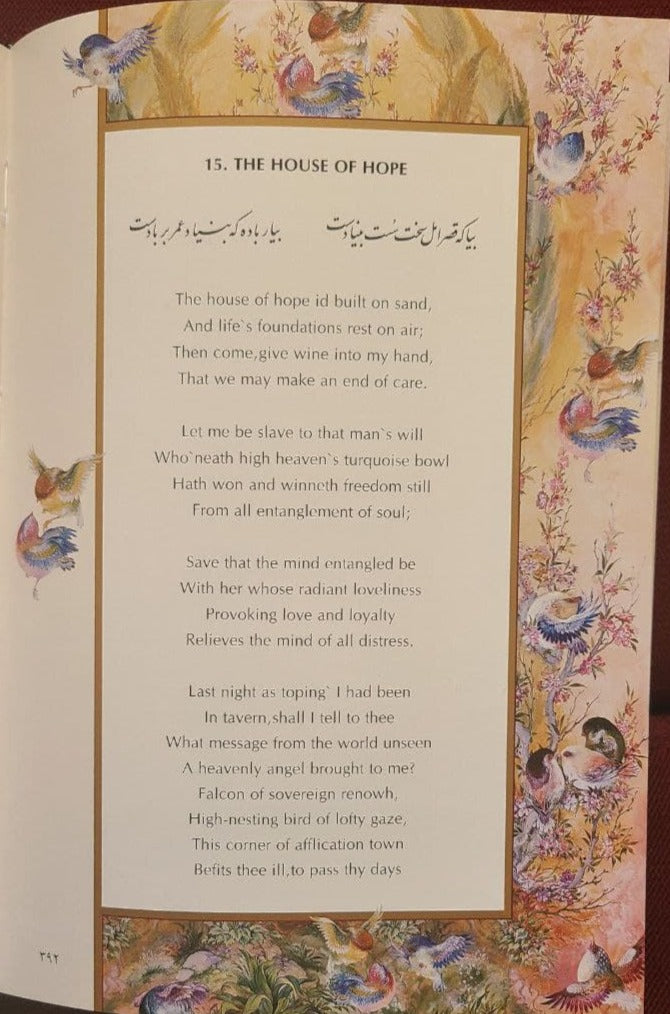 15. THE HOUSE OF HOPE
بیا که قصر امل سخت سست بنیادست بیار باده که بنیاد عمر بر بادست
The house of hope id built on sand,
And life`s foundations rest on air;
Then come,give wine into my hand,
That we may make an end of care.
Let me be slave to that man`s will
Who`neath high heaven`s turquoise bowl
Hath won and winneth freedom still
From all entanglement of soul;
Save that the mind entangled be
With her whose radiant loveliness
Provoking love and loyalty
Relieves the mind of all distress.
Last night as toping` I had been
In tavern,shall I tell to thee
What message from the world unseen
A heavenly angel brought to me?
Falcon of sovereign renowh,
High-nesting bird of lofty gaze,
This corner of afflication town
Befits thee ill,to pass thy days
۳۹۲